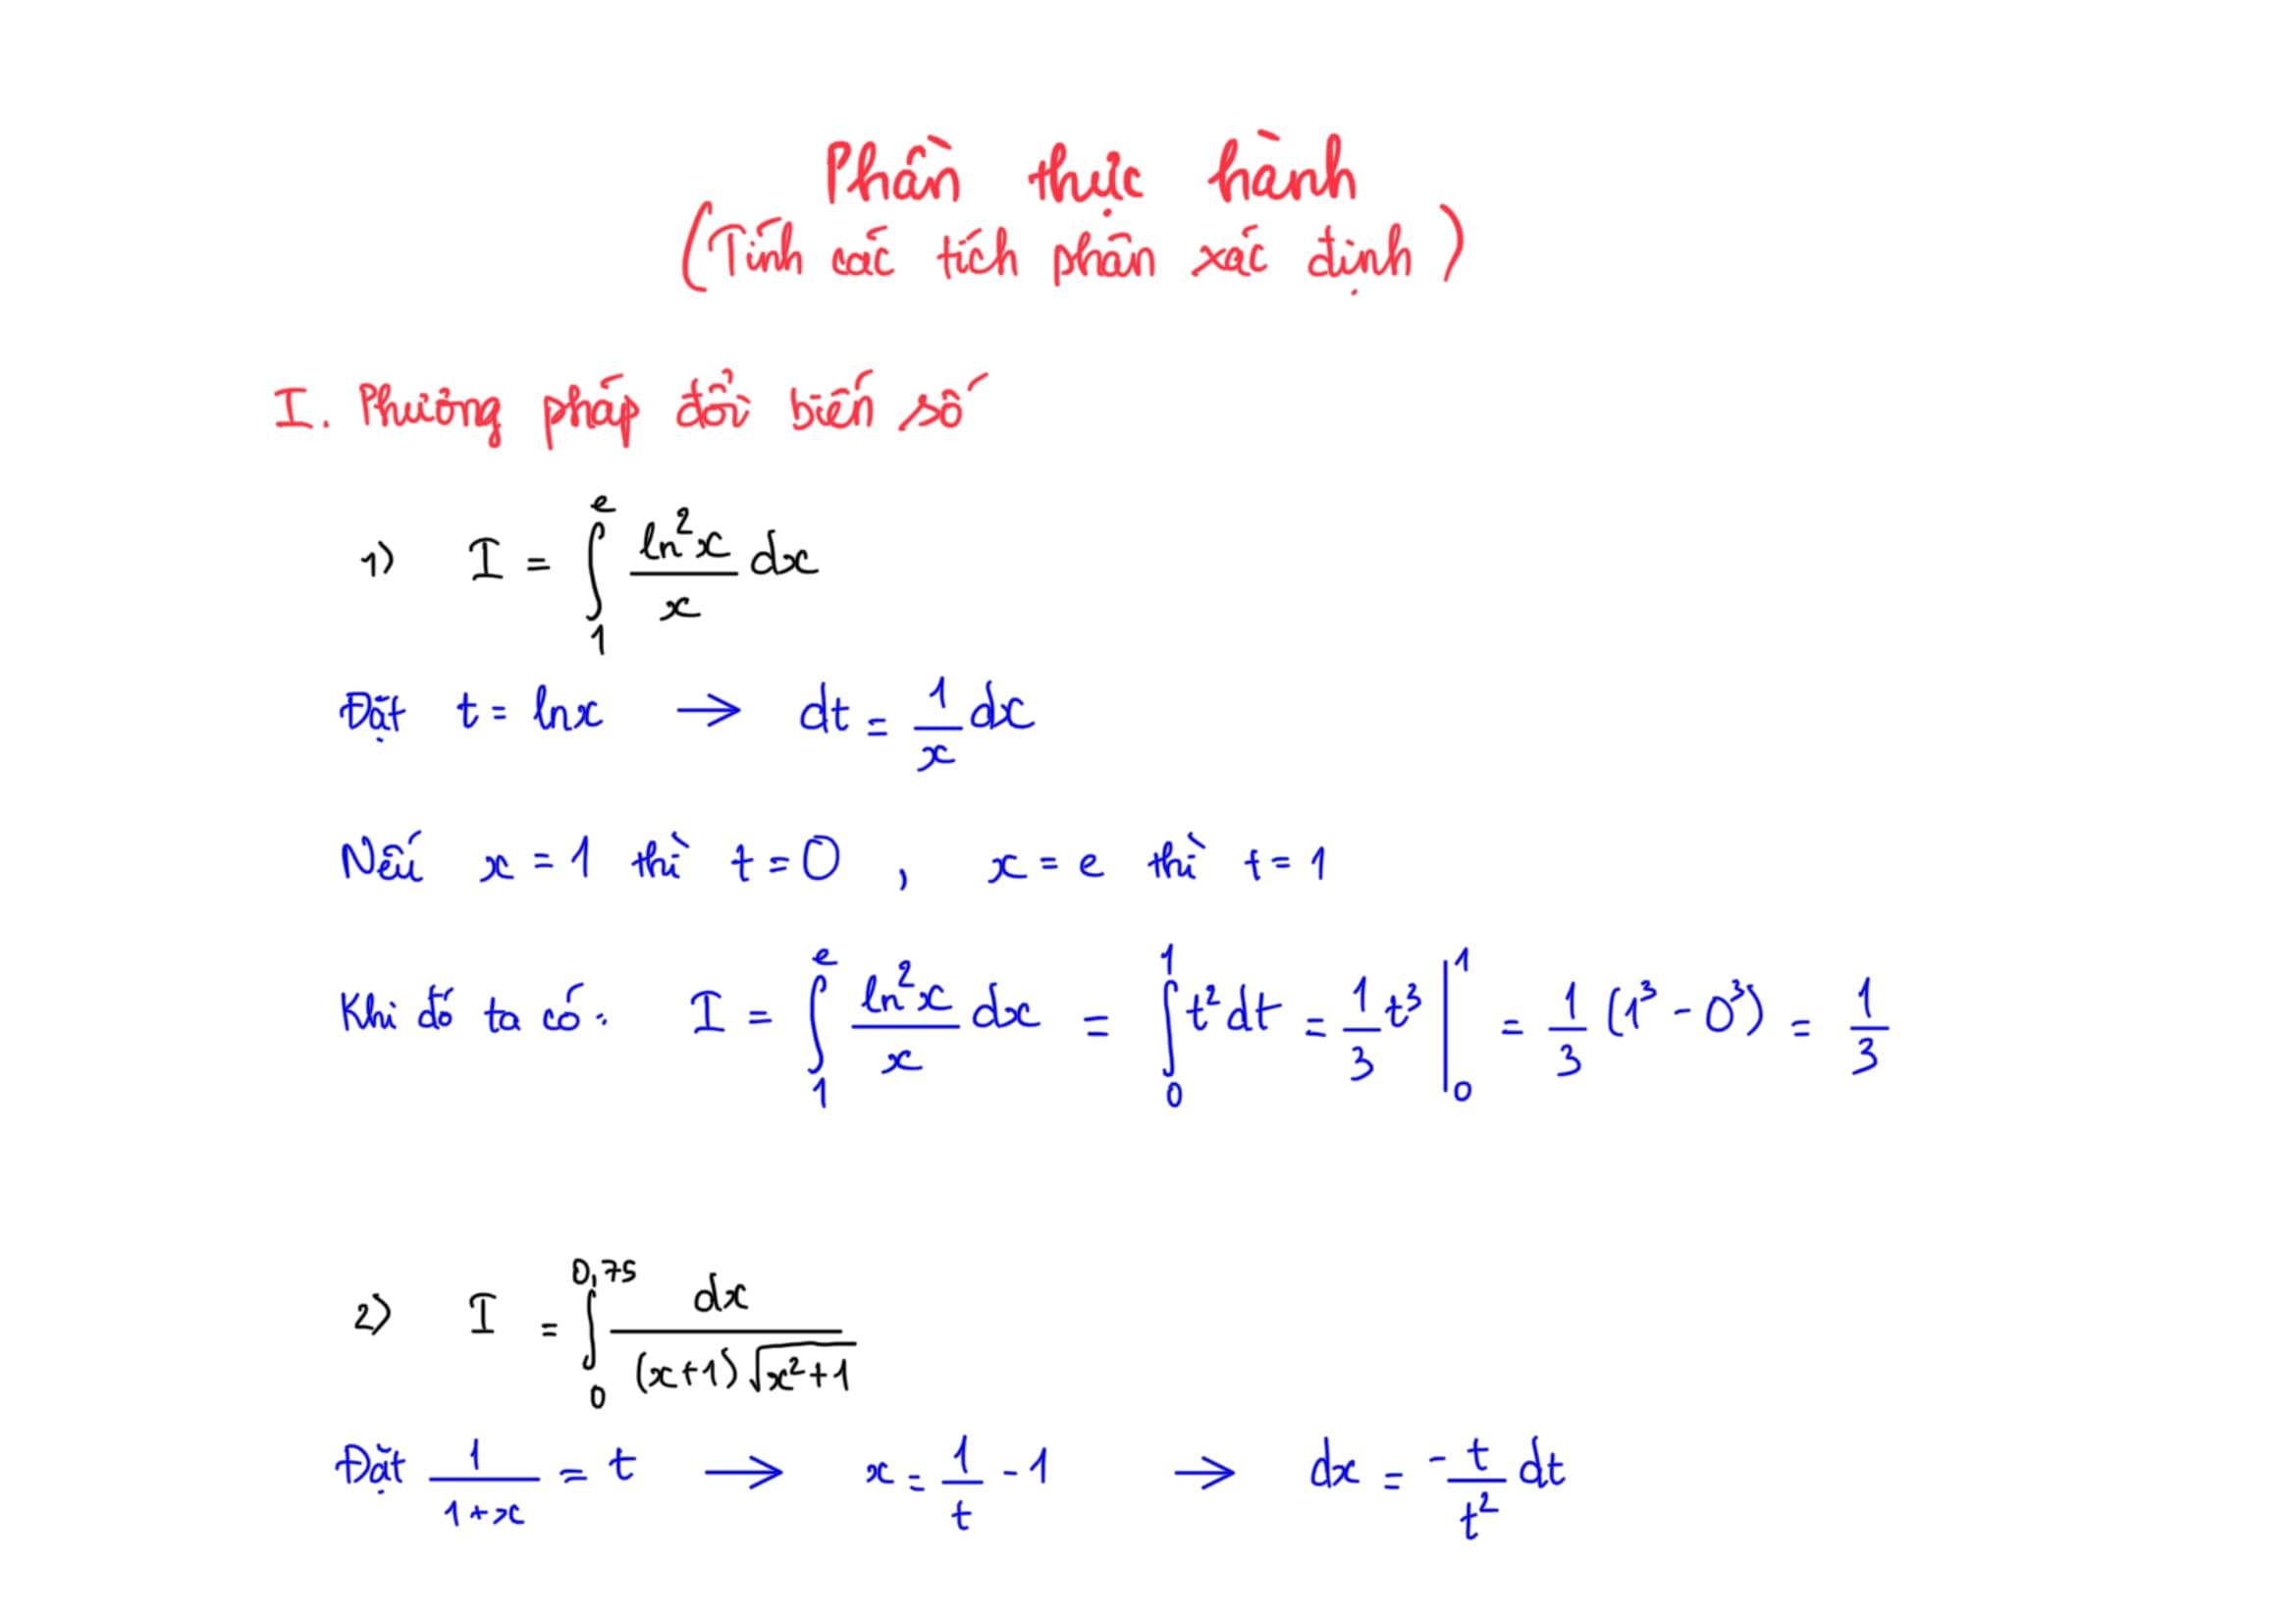 Phần thực hành
(Tính các tích phân xác định)
I. Phương pháp đổi biến số
1) I = ∫₁ᵉ (ln²x / x) dx
Đặt t = lnx → dt = (1/x) dx
Nếu x = 1 thì t = 0 , x = e thì t = 1
Khi đó ta có: I = ∫₁ᵉ (ln²x / x) dx = ∫₀¹ t² dt = (1/3) t³ |₀¹ = (1/3) (1³ - 0³) = 1/3
2) I = ∫₀^0,75 dx / ((x+1)√(x²+1))
Đặt 1/(1+x) = t → x = 1/t - 1 → dx = -(t/t²) dt